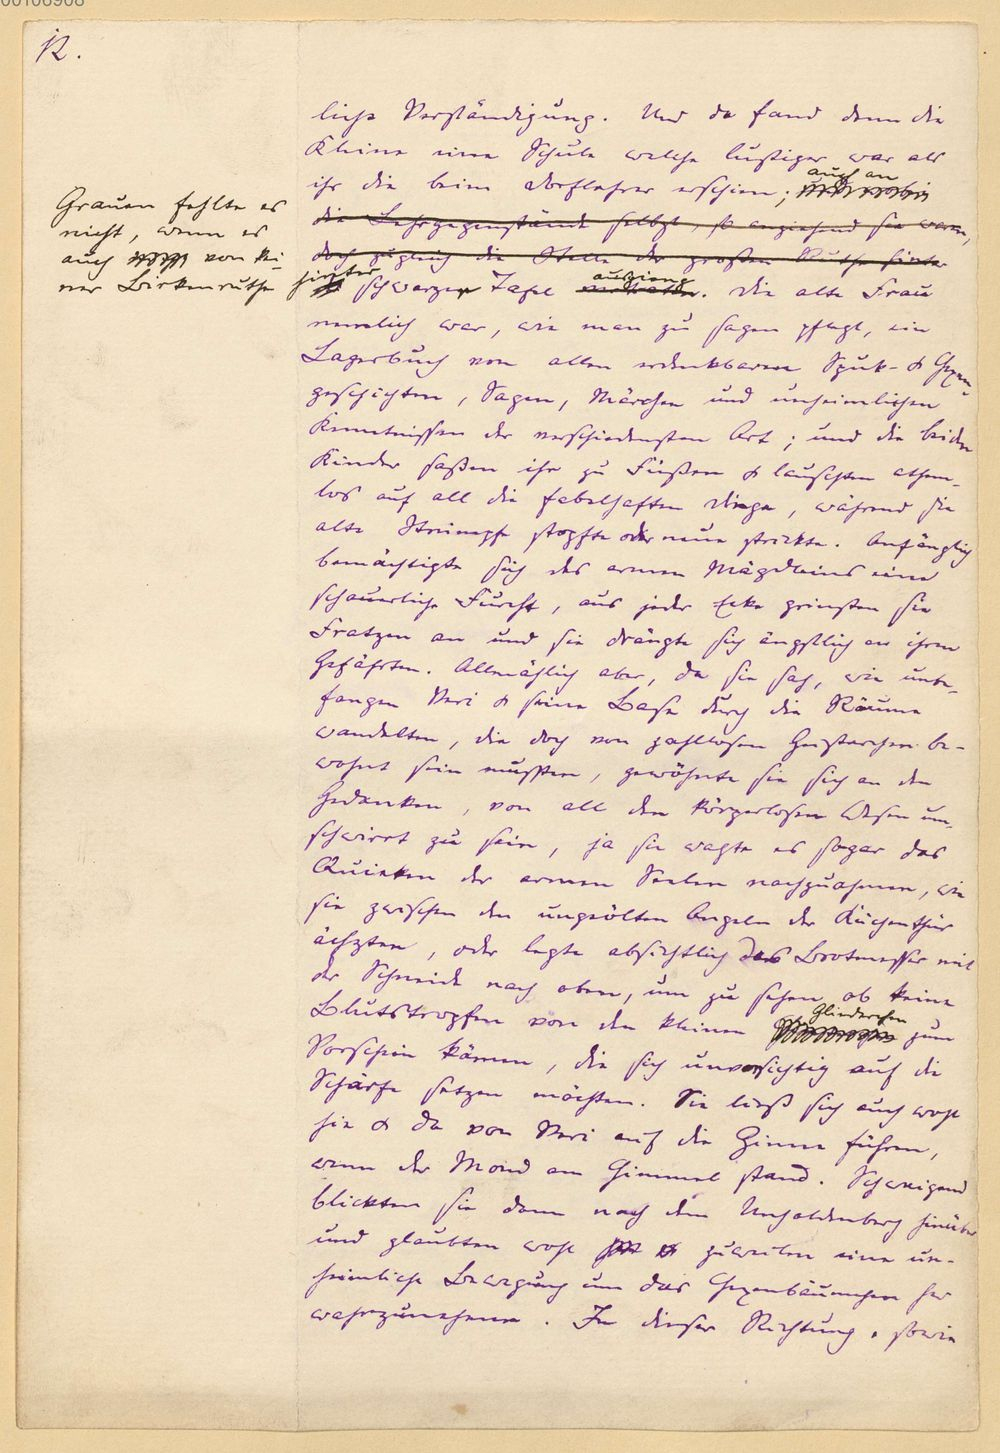 00106908
12.
liche Verständigung. Und da fand denn die
Kleine eine Schule welche lustiger war als
ihr die beim Dorflehrer erschien; auch an
Grauen fehlte es
nicht, wenn es
auch von kei-
ner Birkenruthe
die Lehrgegenstände selbst, so anziehend sie waren,
doch zugleich die Stelle der großen Ruthe hinter
hinter schwarzer Tafel ausging. Die alte Frau
nemlich war, wie man zu sagen pflegt, ein
Lagerbuch von allen erdenkbaren Spuk- & Hexen-
geschichten, Sagen, Märchen und unheimlichen
Kenntnissen der verschiedensten Art; und die beiden
Kinder saßen ihr zu Füßen & lauschten athem-
los auf all die fabelhaften Dinge, während die
alte Strümpfe stopfte oder neue strickte. Anfänglich
bemächtigte sich des armen Mägdleins eine
schauerliche Furcht, aus jeder Ecke grinsten sie
Fratzen an und sie drängte sich ängstlich an ihren
Gefährten. Allmählich aber, da sie sah, wie unbe-
fangen Veri & seine Base durch die Räume
wandelten, die doch von zahllosen Geisterchen be-
wohnt sein mußten, gewöhnte sie sich an den
Gedanken, von all den körperlosen Wesen um-
schwirrt zu sein, ja sie wagte es sogar das
Quieken der armen Seelen nachzuahmen, wie
sie zwischen den ungeölten Angeln der Küchenthür
ächzten, oder legte absichtlich das Brotmesser mit
der Schneide nach oben, um zu sehen ob keine
Blutstropfen von den kleinen Gliederchen zum
Vorschein kämen, die sich unvorsichtig auf die
Schärfe setzen möchten. Sie ließ sich auch wohl
hie & da von Veri auf die Zinne führen,
wenn der Mond am Himmel stand. Schweigend
blickten sie dann nach dem Unholdenberg hinüber
und glaubten wohl zuweilen eine un-
heimliche Bewegung um das Hexenbäumchen her
wahrzunehmen. In dieser Richtung, sowie